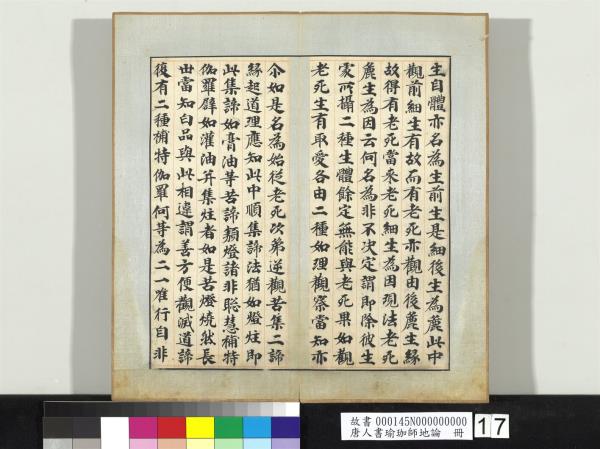 生自體亦名為生前生是細後生為麁此中
觀前細生有故而有老死亦觀由後麁生緣
故得有老死當来老死細生為因現法老死
麁生為因云何名為非不决定謂即除彼生
家所攝二種生體餘定無能與老死果如觀
老死生有取愛各由二種如理觀察當知亦
尒如是名為始從老死次弟逆觀苦集二諦
緣起道理應知此中順集諦法猶如燈炷即
此集諦如膏油等苦諦類燈諸非聡慧補特
伽羅辟如灌油并集炷者如是苦燈燒然長
世當知白品與此相違謂善方便觀滅道諦
復有二種補特伽羅何等為二一唯行自非
故書 000145N000000000
唐人書瑜珈師地論 冊
17